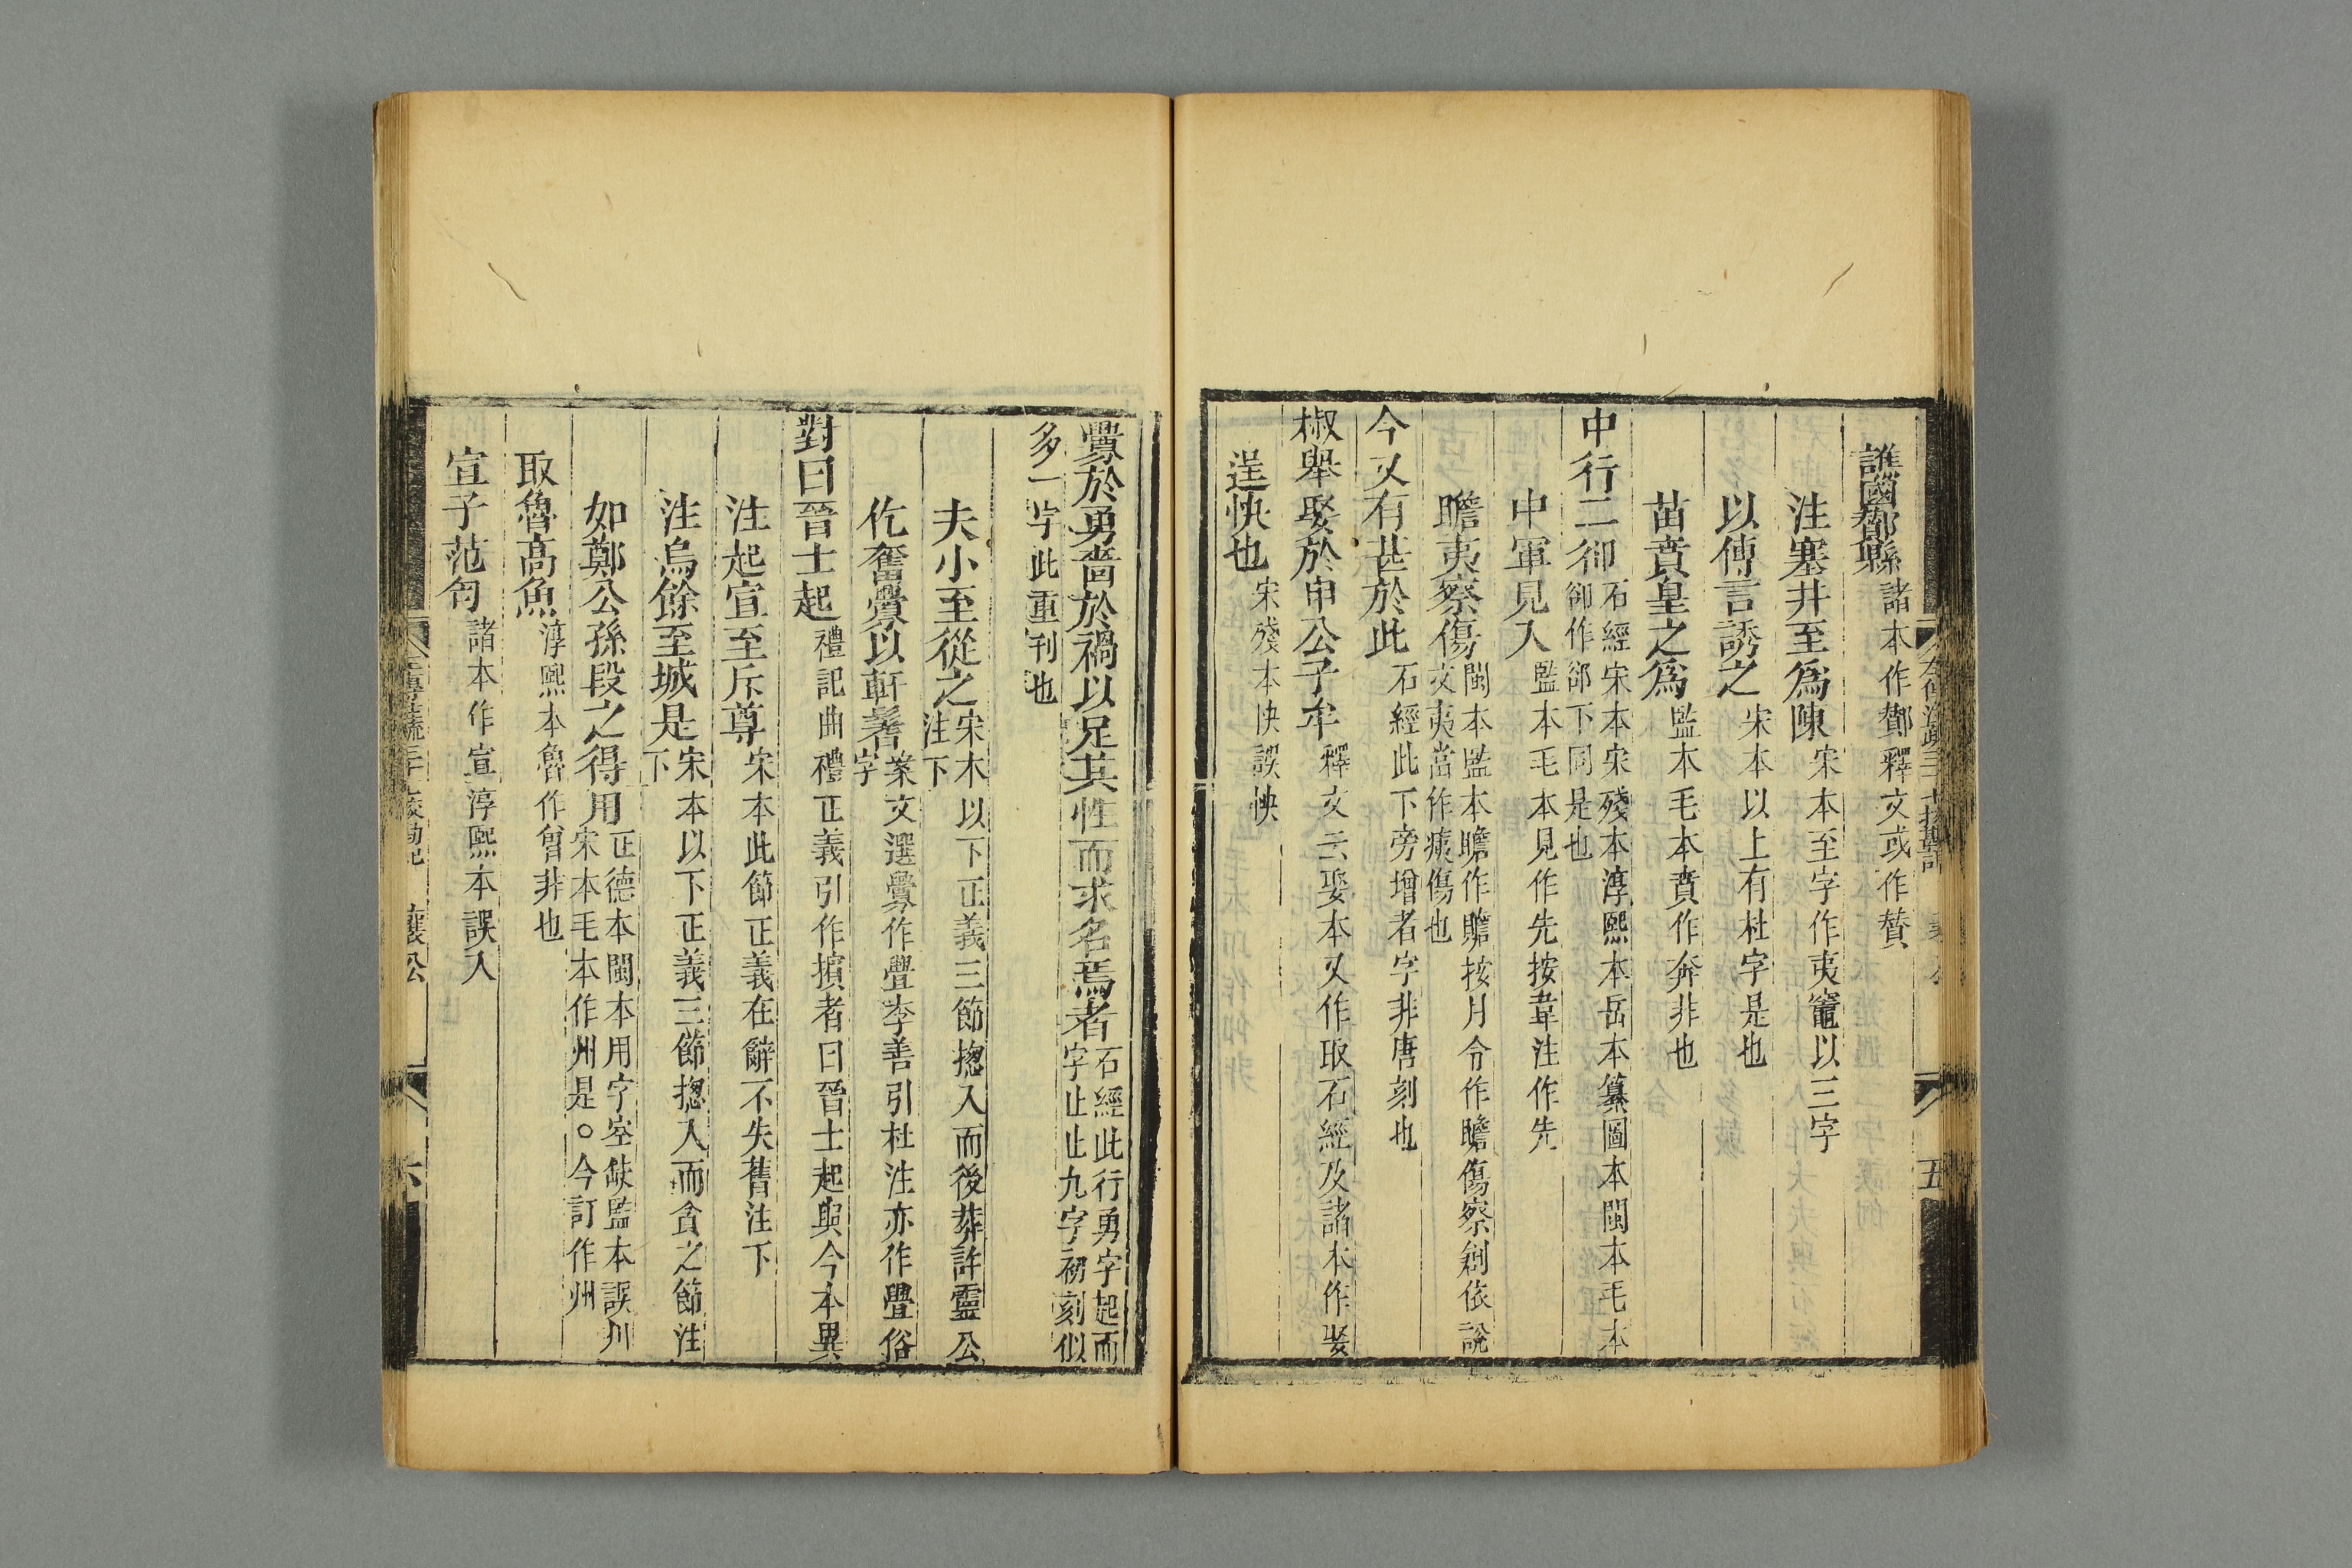 譙國酇縣諸本作酇釋文或作贊
注塞井至爲陳宋本至字作夷竈以三字
以傅言誘之宋本以上有杜字是也
苗賁皇之爲監本毛本賁作奔非也
中行二郤石經宋本宋殘本淳熙本岳本纂圖本閩本毛本
卻作郤下同是也
中軍見入監本毛本見作先按韋注作先
瞻夷察傷閩本監本瞻作贍按月令作瞻傷察創依說
文夷當作痍傷也
今又有甚於此石經此下旁增者字非唐刻也
椒舉娶於申公子牟釋文云娶本又作取石經及諸本作娶
逞快也宋殘本快誤怏
五
釁於勇嗇於禍以足其性而求名焉者石經此行勇字起而
字止止九字初刻似
多一字此重刊也
夫小至從之宋本以下正義三節揔入而後葬許靈公
注下
仡奮舋以軒鬐案文選釁作舋李善引杜注亦作舋俗
字
對曰晉士起禮記曲禮正義引作擯者曰晉士起與今本異
注起宣至斥尊宋本此節正義在辭不失舊注下
注烏餘至城是宋本以下正義三節揔入而貪之節注
下
如鄭公孫段之得用正德本閩本用字空缺監本誤川
宋本毛本作州是○今訂作州
取魯高魚淳熙本魯作曾非也
宣子范匄諸本作宣淳熙本誤入
襄公
六